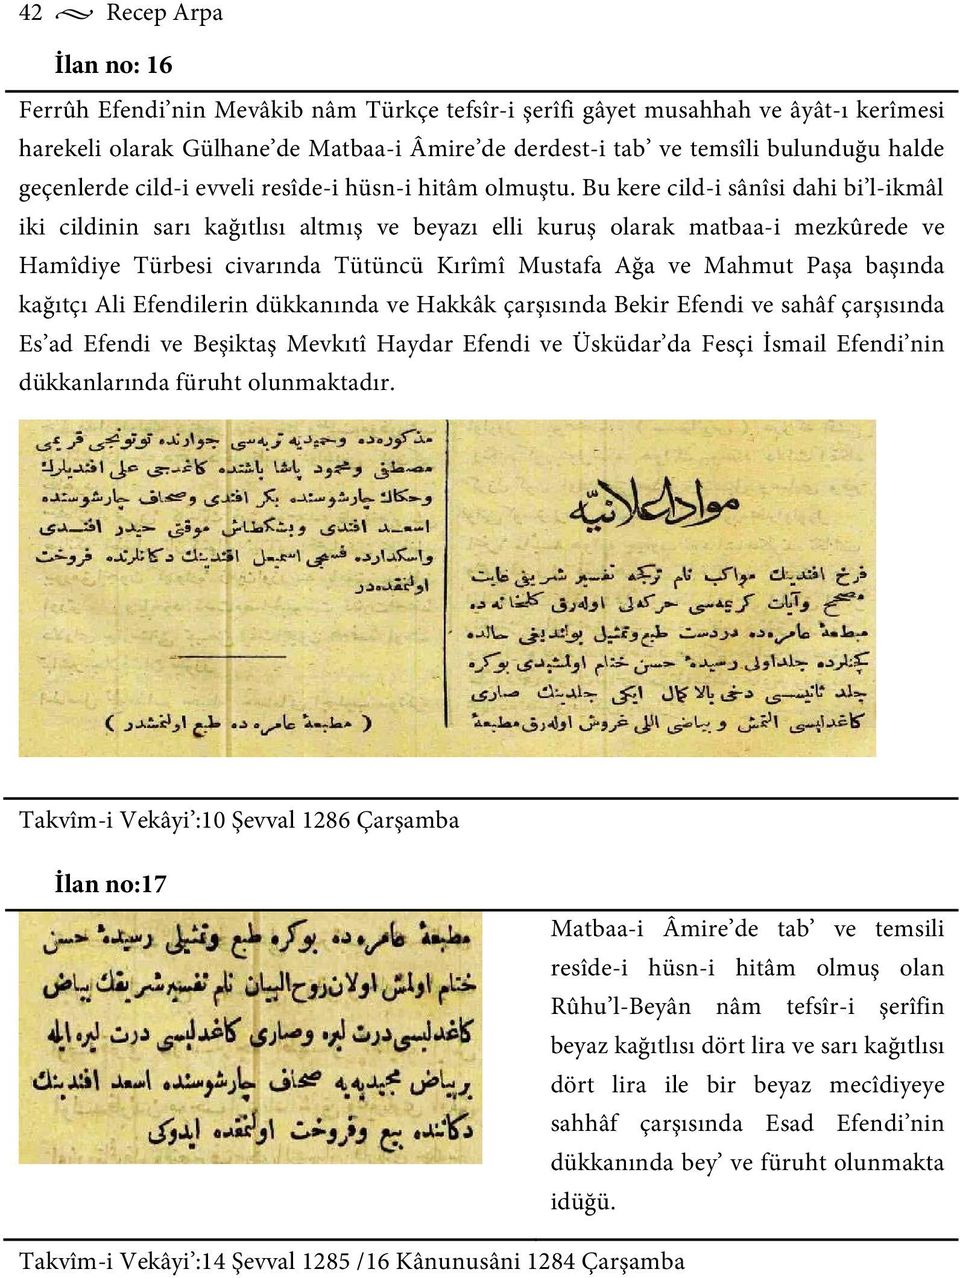 42 Recep Arpa
İlan no: 16
Ferrûh Efendi’nin Mevâkib nâm Türkçe tefsîr-i şerîfi gâyet musahhah ve âyât-ı kerîmesi
harekeli olarak Gülhane’de Matbaa-i Âmire’de derdest-i tab’ ve temsîli bulunduğu halde
geçenlerde cild-i evveli resîde-i hüsn-i hitâm olmuştu. Bu kere cild-i sânîsi dahi bi’l-ikmâl
iki cildinin sarı kağıtlısı altmış ve beyazı elli kuruş olarak matbaa-i mezkûrede ve
Hamîdiye Türbesi civarında Tütüncü Kırîmî Mustafa Ağa ve Mahmut Paşa başında
kağıtçı Ali Efendilerin dükkanında ve Hakkâk çarşısında Bekir Efendi ve sahâf çarşısında
Es’ad Efendi ve Beşiktaş Mevkıtî Haydar Efendi ve Üsküdar’da Fesçi İsmail Efendi’nin
dükkanlarında füruht olunmaktadır.
مواد اعلانیه
فرخ افندینك مواكب نام تركجه تفسیر شریفی غایت
مصحح وآیات كریمه‌سی حركه‌لی اوله‌رق كلخانه ده
مطبعهٔ عامره‌ده دردست طبع وتمثیل بولندیغی حالده
كچنلرده جلد اولی رسیدهٔ حسن ختام اولمشیدی بوكره
جلد ثانیسی دخی بالاكمال ایكی جلدینك صاری
كاغدلیسی التمش و بیاضی اللی غروش اوله‌رق مطبعهٔ
مذكوره‌ده وحمیدیه تربه‌سی جوارنده توتونجی قریمی
مصطفی ومحمود پاشا باشنده كاغدجی علی افندیلرك
وحكاك چارشوسنده بكر افندی وصحاف چارشوسنده
اسعد افندی وبشكطاش موقتی حیدر افندی
واسكدارده فسجی اسمعیل افندینك دكانلرنده فروخت
اولنمقده‌در
( مطبعهٔ عامره ده طبع اولنمشدر )
Takvîm-i Vekâyi’:10 Şevval 1286 Çarşamba
İlan no:17
مطبعهٔ عامره ده بوكره طبع وتمثیلی رسیدهٔ حسن
ختام اولمش اولان روح البیان نام تفسیر شریفك بیاض
كاغدلیسی درت لیره وصاری كاغدلیسی درت لیره ایله
بر بیاض مجیدیه‌یه صحاف چارشوسنده اسعد افندینك
دكاننده بیع وفروخت اولنمقده ایدوكی
Matbaa-i Âmire’de tab’ ve temsili
resîde-i hüsn-i hitâm olmuş olan
Rûhu’l-Beyân nâm tefsîr-i şerîfin
beyaz kağıtlısı dört lira ve sarı kağıtlısı
dört lira ile bir beyaz mecîdiyeye
sahhâf çarşısında Esad Efendi’nin
dükkanında bey’ ve füruht olunmakta
idüğü.
Takvîm-i Vekâyi’:14 Şevval 1285 /16 Kânunusâni 1284 Çarşamba